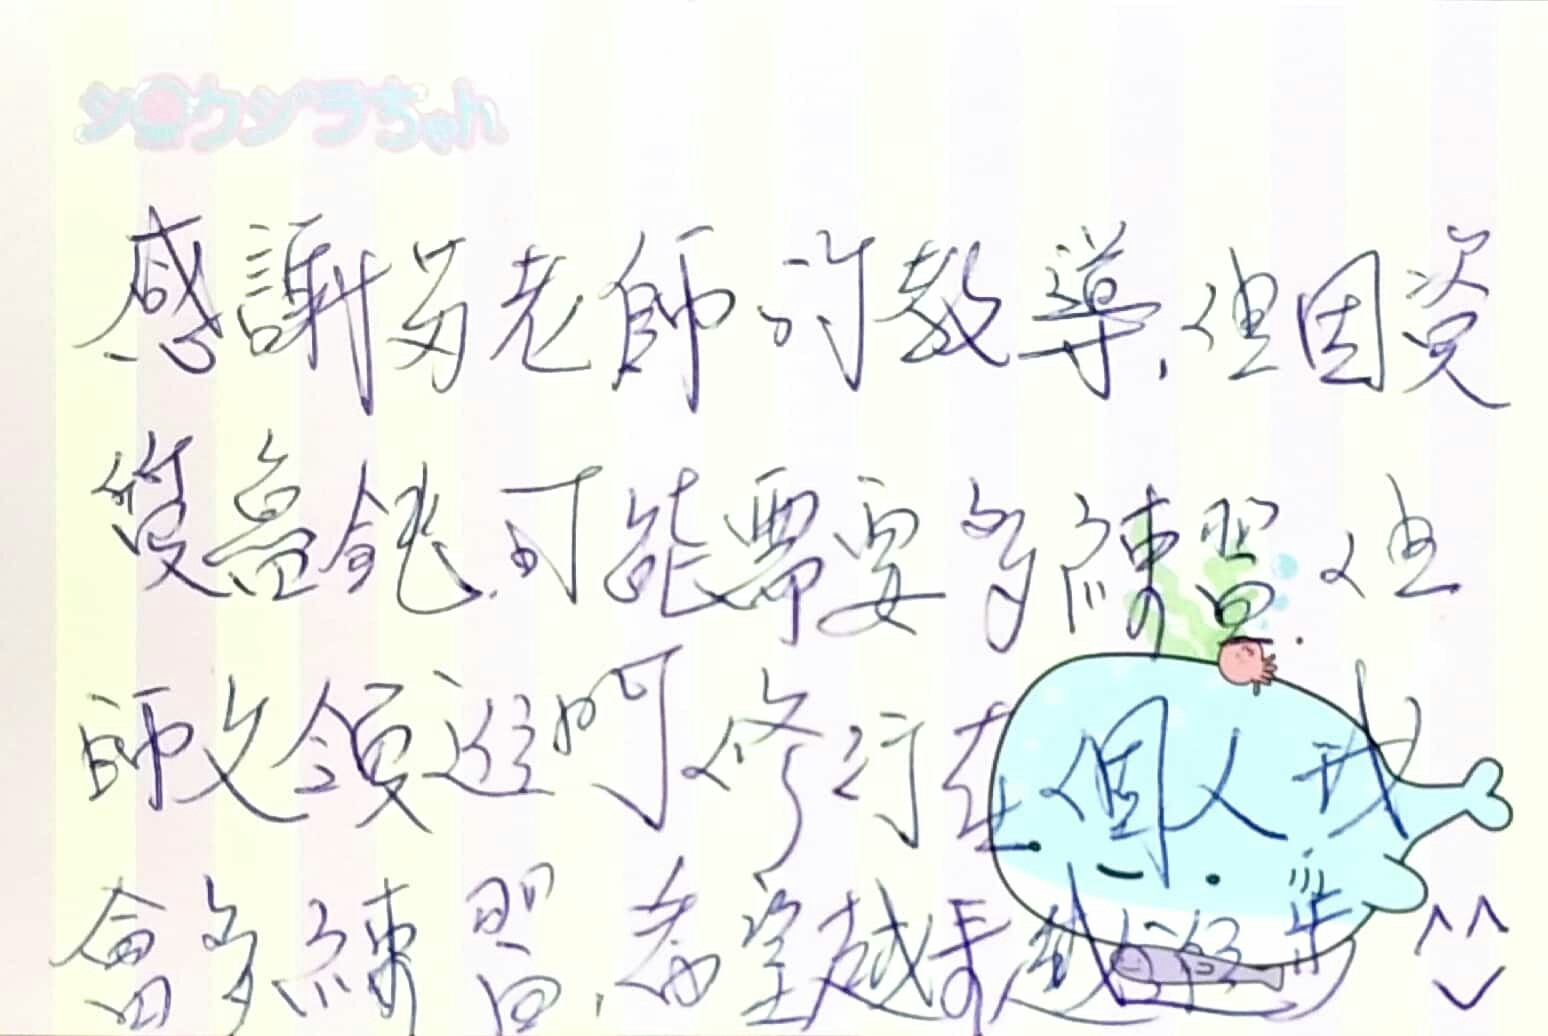 シロクジラちゃん
感謝另老師的教導,但因資
質魯鈍,可能需要多練習,但
師父領進門修行在個人我
會多練習,希望越來越進步
^^